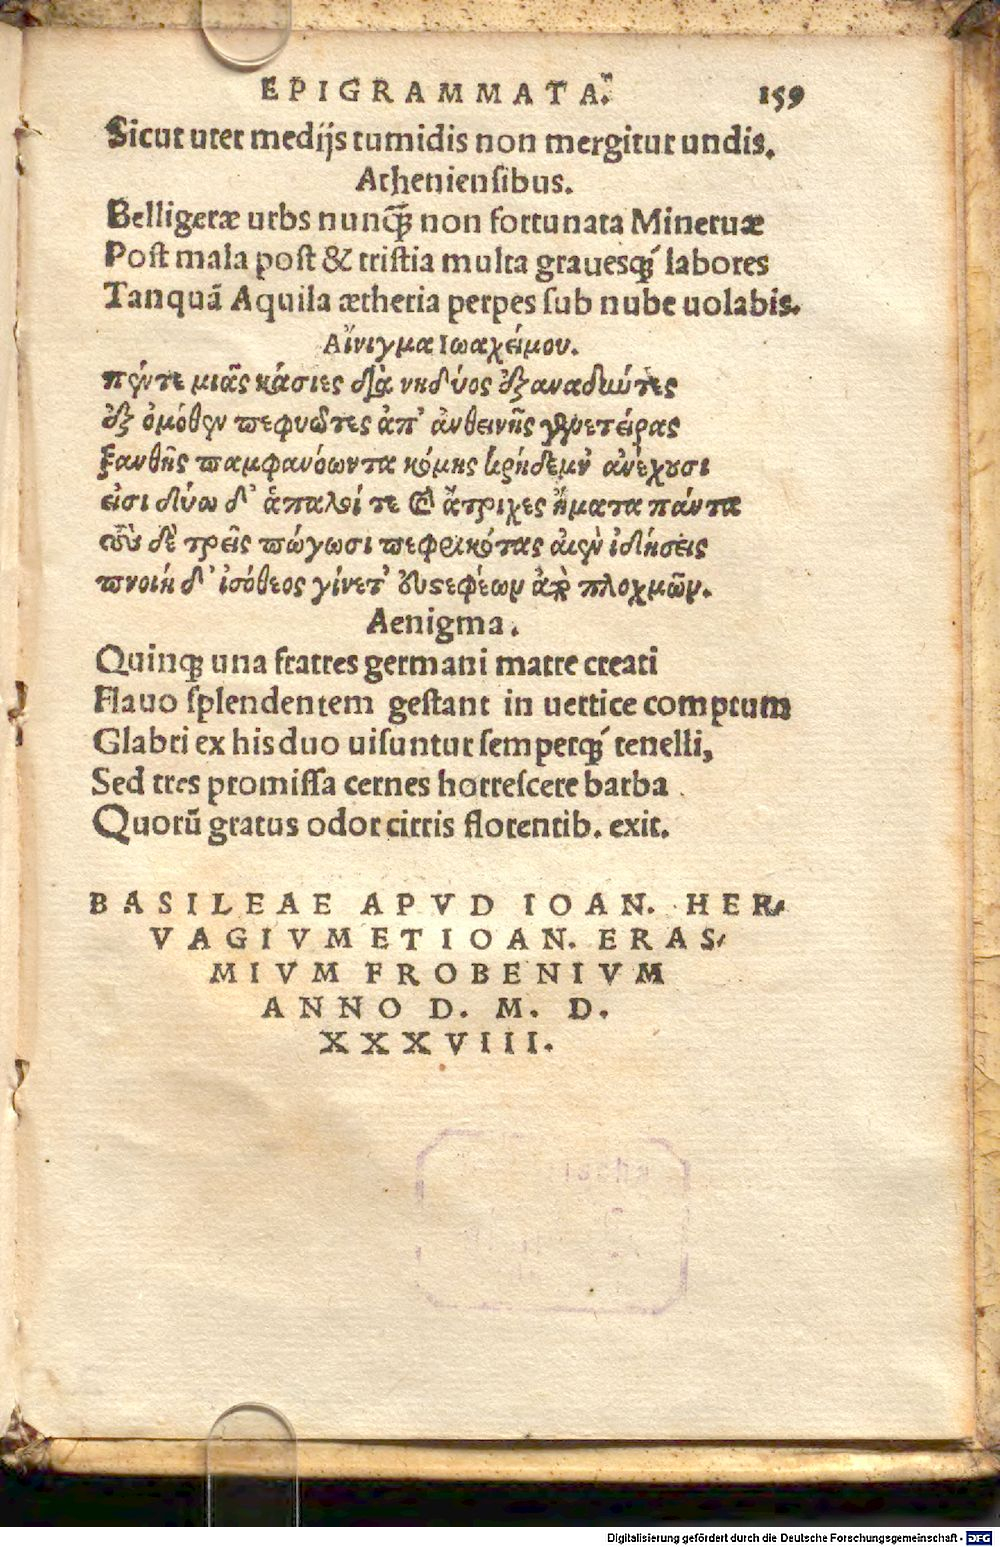 EPIGRAMMATA. 159
Sicut uter medijs tumidis non mergitur undis.
Atheniensibus.
Belligeræ urbs nunꝗ̃ non fortunata Mineruæ
Post mala post & tristia multa grauesq́; labores
Tanquã Aquila ætheria perpes sub nube uolabis.
Αἴνιγμα Ιωαχείμου.
πέντε μιᾶς κάσιες διὰ νηδύος ἐξαναδιώτες
ἐξ ὁμόθεν πεφυῶτες ἀπ' ἀνθεινῆς γενετείρας
ξανθῆς παμφανόωντα κόμης κρήδεμν' ἀνέχουσι
εἰσι δύω δ' ἁπαλοί τε καὶ ἄτριχες ἤματα πάντα
δὲ τρεῖς πώγωσι πεφρικότας αἰεν ἰδήσεις
πνοιὴ δ' ἰσόθεος γίνετ' ἀπὸ πλοχμῶν.
Aenigma.
Quinq; una fratres germani matre creati
Flauo splendentem gestant in uertice comptum
Glabri ex his duo uisuntur semperq́; tenelli,
Sed tres promissa cernes horrescere barba
Quorũ gratus odor cirris florentib. exit.
BASILEAE APVD IOAN. HER-
VAGIVM ET IOAN. ERAS-
MIVM FROBENIVM
ANNO D. M. D.
XXXVIII.
Digitalisierung gefördert durch die Deutsche Forschungsgemeinschaft - DFG